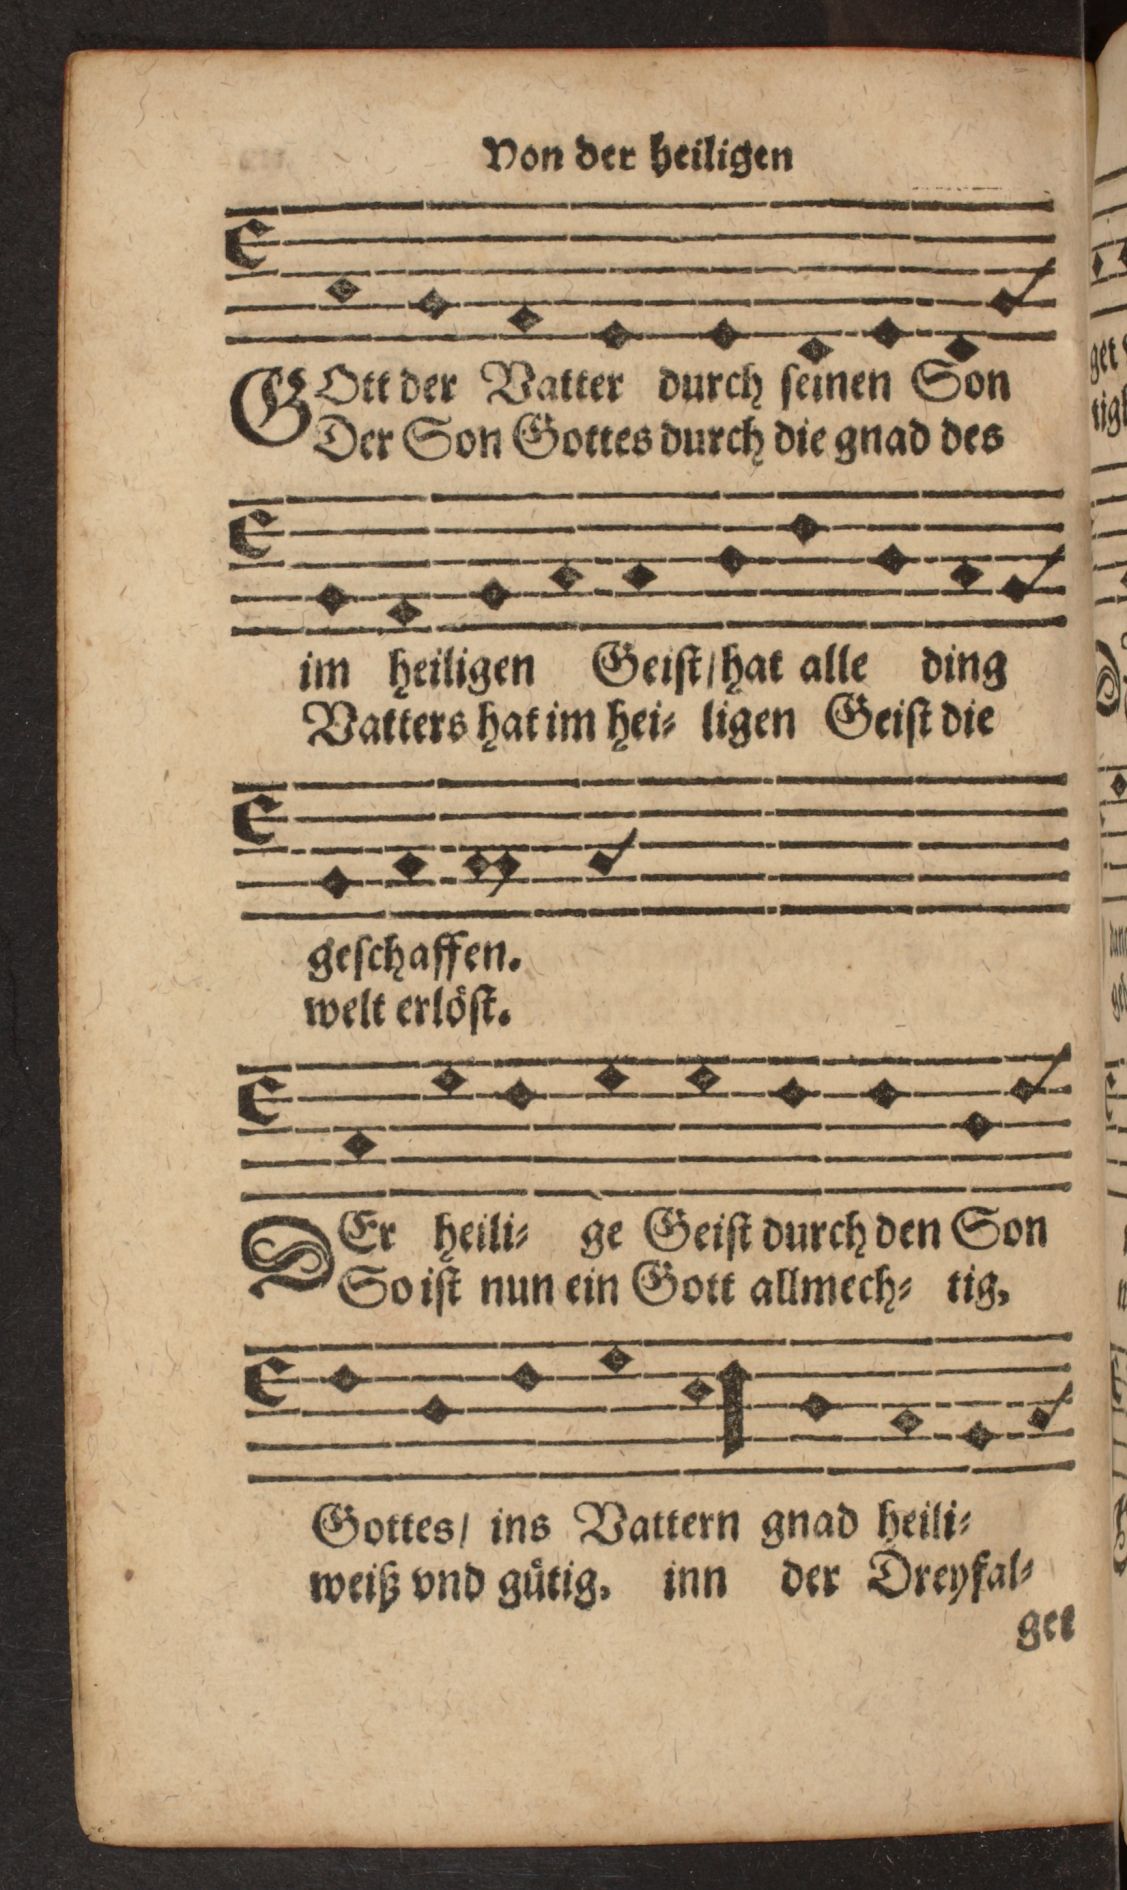 Von der heiligen
GOtt der Vatter durch seinen Son
Der Son Gottes durch die gnad des
im heiligen Geist/ hat alle ding
Vatters hat im hei⸗ ligen Geist die
geschaffen.
welt erlöst.
DEr heili⸗ ge Geist durch den Son
So ist nun ein Gott allmech⸗ tig,
Gottes/ ins Vattern gnad heili⸗
weiß vnd gütig, inn der Dreyfal⸗
get